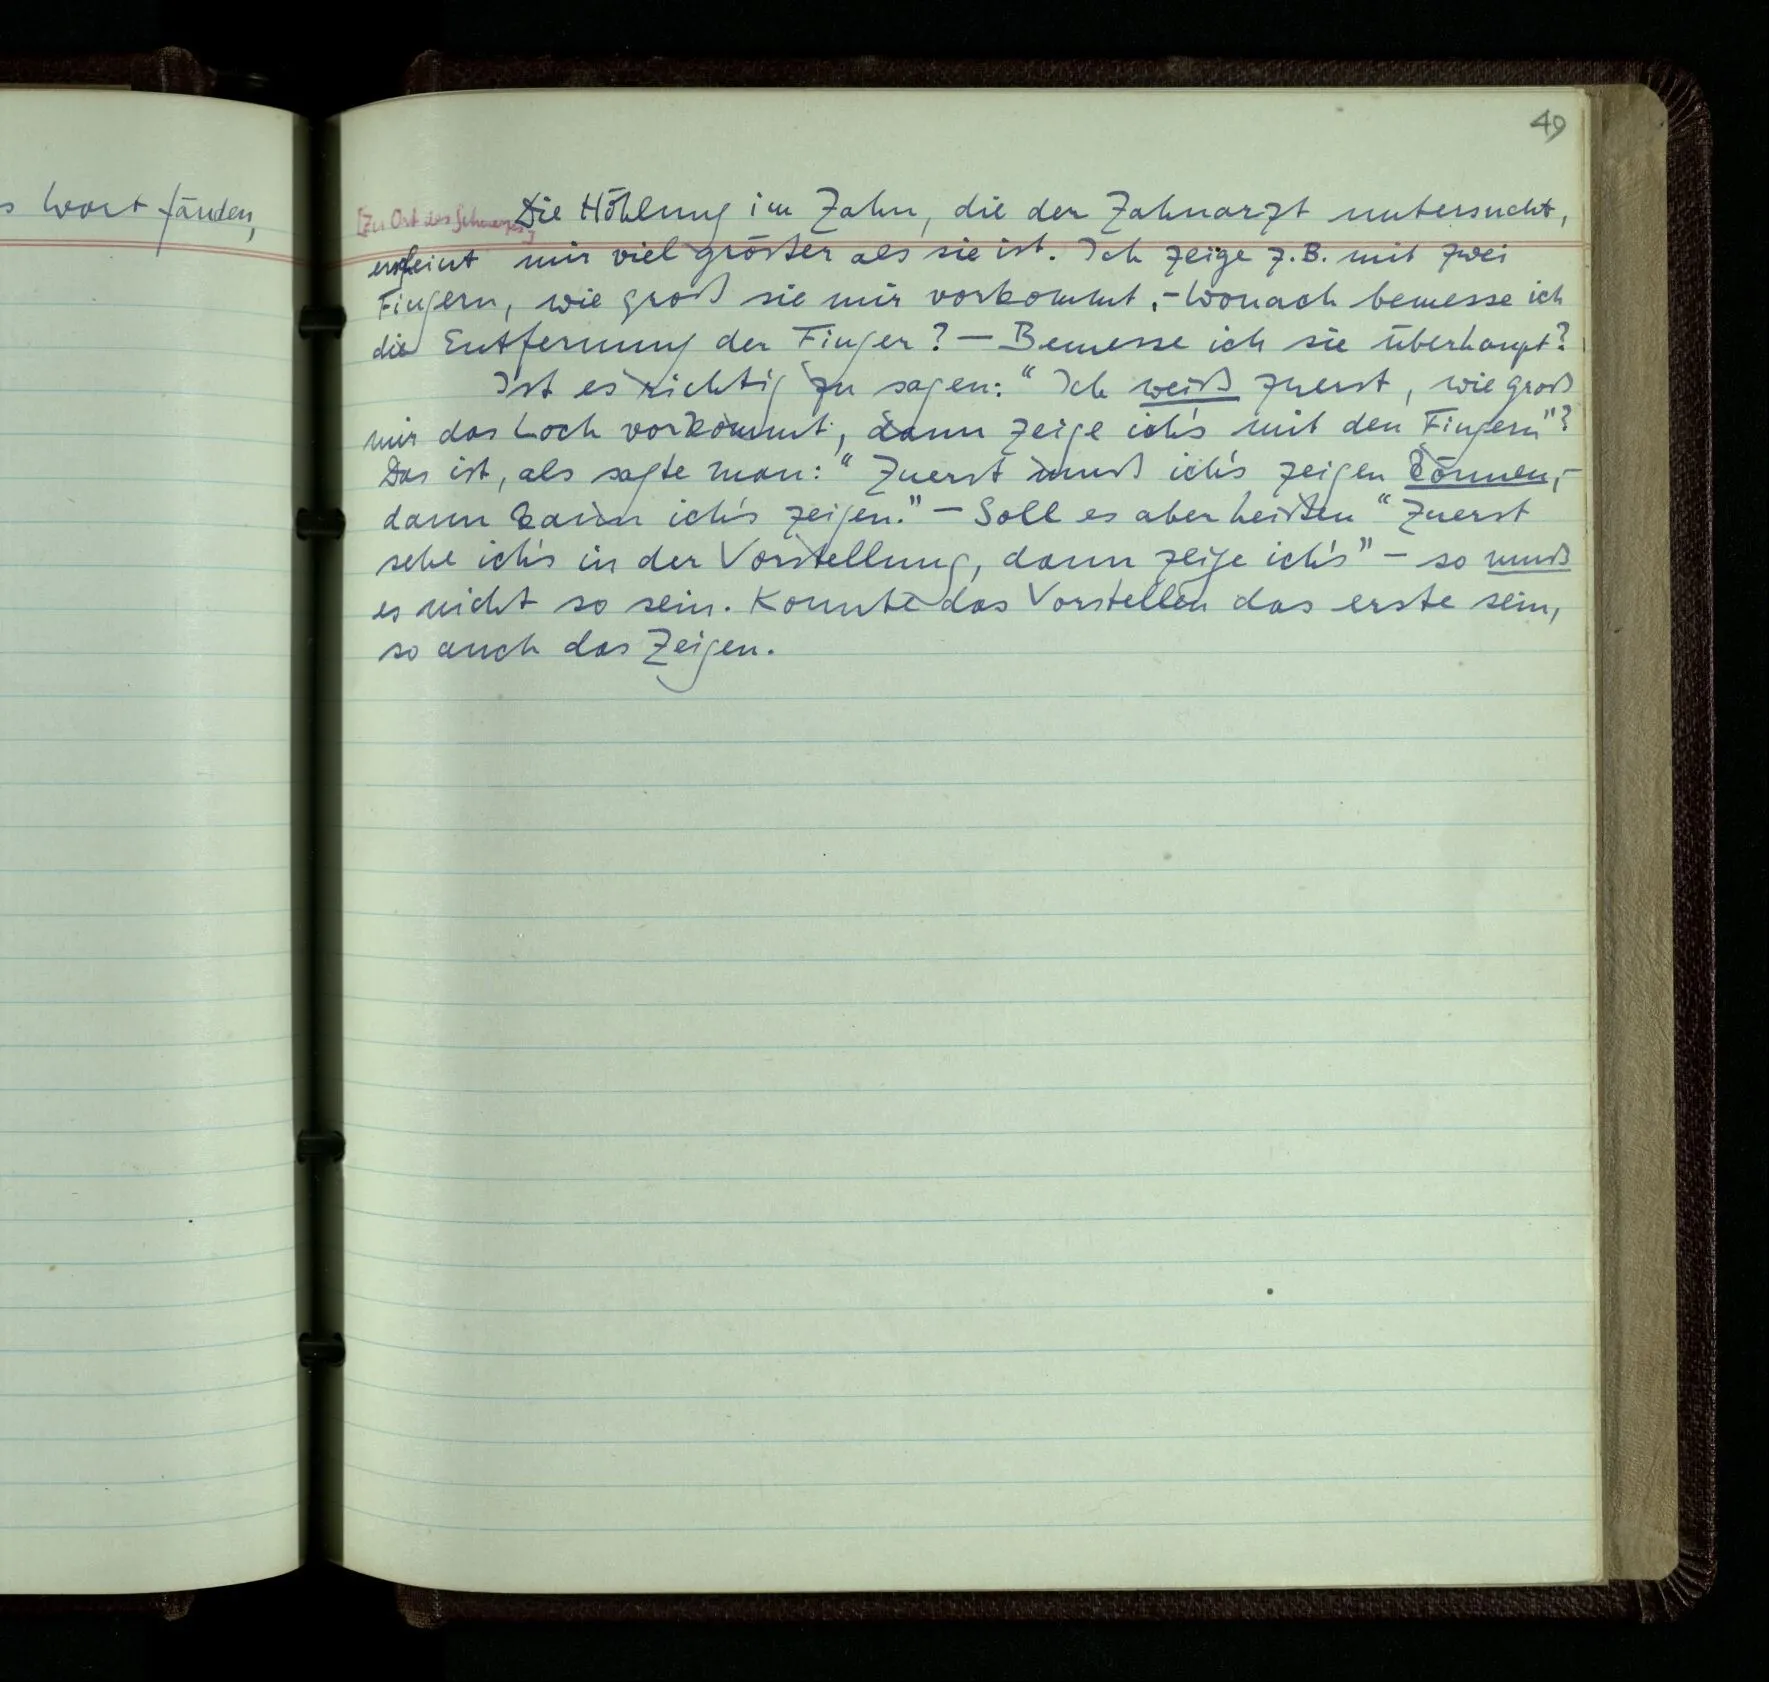 s Wort fänden,
49
[Zu Ort des Schmerzes]
Die Höhlung im Zahn, die der Zahnarzt untersucht,
erscheint mir viel größer als sie ist. Ich zeige z.B. mit zwei
Fingern, wie groß sie mir vorkommt. – Wonach bemesse ich
die Entfernung der Finger? – Bemesse ich sie überhaupt?
Ist es richtig zu sagen: “Ich weiß zuerst, wie groß
mir das Loch vorkommt, dann zeige ich's mit den Fingern”?
Das ist, als sagte man: “Zuerst muß ich's zeigen können, –
dann kann ich's zeigen.” – Soll es aber heißen “Zuerst
sehe ich's in der Vorstellung, dann zeige ich's” – so muß
es nicht so sein. Konnte das Vorstellen das erste sein,
so auch das Zeigen.